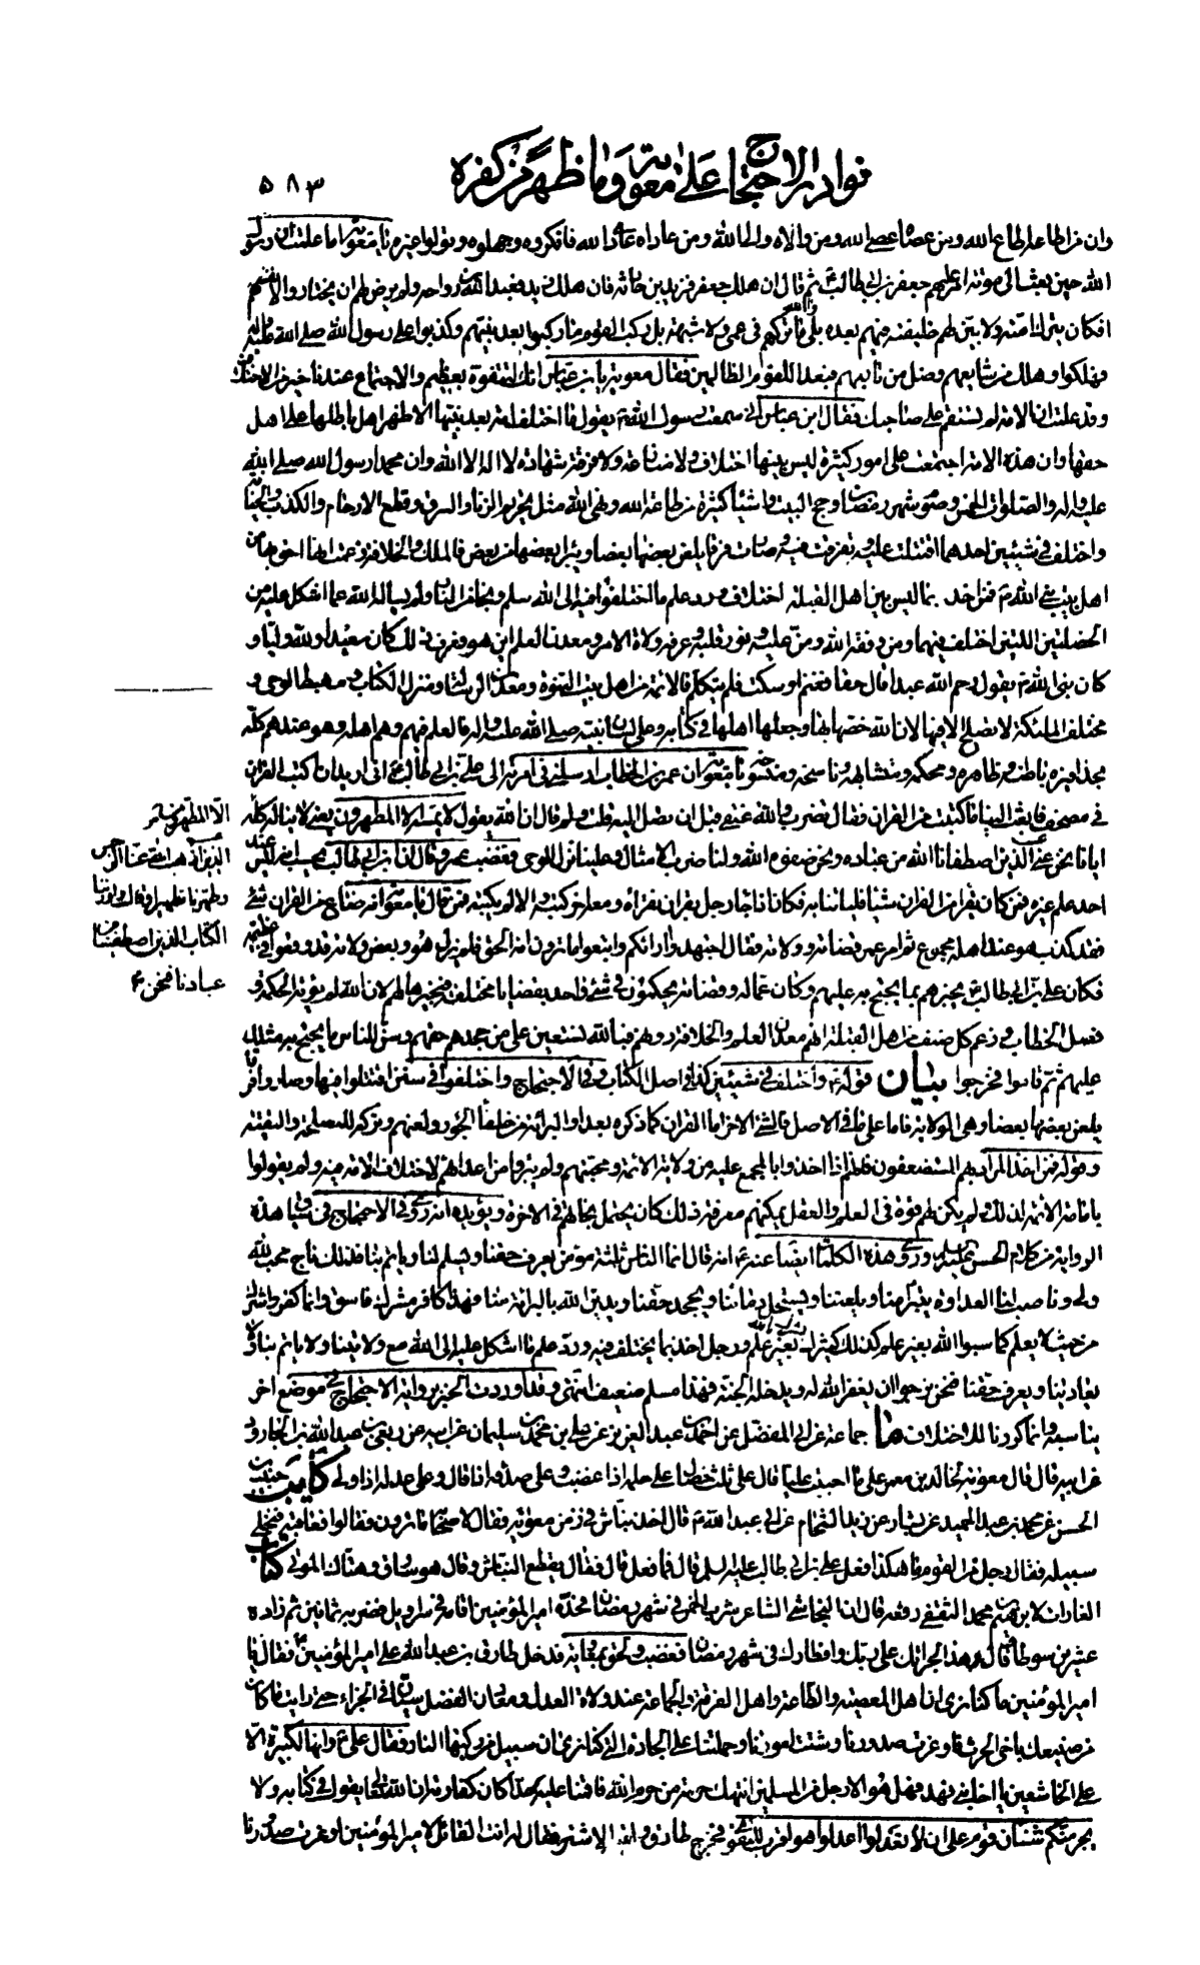 نوادر الاحتجاج على معوية وما ظهر من كفره
٥٨٣
وان من اطاعه اطاع الله ومن عصاه عصى الله ومن والاه والى الله ومن عاداه عادى الله فانكروه وجهلوه وتولوا غيره يا معوية اما علمت ان رسول
الله حين بعث الى موتة امر عليهم جعفر بن ابي طالب ثم قال ان هلك جعفر فزيد بن حارثة فان هلك زيد فعبد الله بن رواحة ولم يرض لهم ان يختاروا لانفسهم
افكان يترك امته ولا يبين لهم خليفته فيهم بعده بلى والله ما تركهم في عمى ولا شبهة بل ركب القوم ما ركبوا بعد نبيهم وكذبوا على رسول الله صلى الله عليه واله
فهلكوا وهلك من شايعهم وضل من تابعهم فبعدا للقوم الظالمين فقال معوية يا بن عباس انك لتتفوه بعظيم والاجتماع عندنا خير من الاختلاف
وقد علمت ان الامة لم تستقم على صاحبك فقال ابن عباس اني سمعت رسول الله ص يقول ما اختلف امة بعد نبيها الا ظهر اهل باطلها على اهل
حقها وان هذه الامة اجتمعت على امور كثيرة ليس بينها اختلاف ولا منازعة ولا فرقة شهادة لا اله الا الله وان محمدا رسول الله صلى الله
عليه واله والصلوات الخمس وصوم شهر رمضان وحج البيت واشياء كثيرة من طاعة الله ونهى الله مثل تحريم الزنا والسرق وقطع الارحام والكذب والخيانة
واختلفت في شيئين احدهما اقتتلت عليه وتفرقت فيه وصارت فرقا يلعن بعضها بعضا ويبرأ بعضها من بعض فالملك والخلافة زعمت انها احق بها من
اهل بيت نبي الله ص فمن اخذ بما ليس بين اهل القبلة اختلاف ورد علم ما اختلفوا فيه الى الله سلم ونجا من النار ولم يسأله الله عما اشكل عليه من
الخصلتين اللتين اختلف فيهما ومن وفقه الله ومن عليه ونور قلبه وعرفه ولاة الامر ومعدن العلم اين هو فعرف ذلك كان سعيدا ولله وليا و
كان نبي الله ص يقول رحم الله عبدا قال حقا فغنم او سكت فلم يتكلم فالائمة من اهل بيت النبوة ومعدن الرسالة ومنزل الكتاب ومهبط الوحي و
مختلف الملئكة لا تصلح الا فيها لان الله خصها بها وجعلها اهلها في كتابه وعلى لسان نبيه صلى الله عليه واله فالعلم فيهم وهم اهله وهو عندهم كله
بحذافيره باطنه وظاهره ومحكمه ومتشابهه وناسخه ومنسوخه يا معوية ان عمر بن الخطاب ارسلني في امرته الى علي بن ابي طالب ع اني اريد ان اكتب القران
في مصحف فابعث الينا ما كتبت من القران فقال تضرب والله عنقي قبل ان تصل اليه قلت ولم قال ان الله يقول لا يمسه الا المطهرون يعني لا يناله كله
ايانا نحن عنى الذين اصطفانا الله من عباده ونحن صفوة الله ولنا ضرب الامثال وعلينا نزل الوحي فغضب عمر وقال ان ابن ابي طالب يحسب انه ليس عند
احد علم غيره فمن كان يقرأ من القران شيئا فلياتنا به فكان اذا جاء رجل بقران يقرأه ومعه اخر كتبه والا لم يكتبه فمن قال يا معوية انه ضاع من القران شئ
فقد كذب هو عند اهله مجموع ثم امر عمر قضاته وولاته فقال اجتهدوا رائكم واتبعوا ما ترون انه الحق فلم يزل هو وبعض ولاته قد وقعوا في عظيمة
فكان علي بن ابي طالب ع يخبرهم بما يحتج به عليهم وكان عماله وقضاته يحكمون في شئ واحد بقضايا مختلفة فيجيزها لهم لان الله لم يؤته الحكمة و
فصل الخطاب وزعم كل صنف من اهل القبلة انهم معدن العلم والخلافة دونهم فبالله نستعين على من جحدهم حقهم وسن للناس ما يحتج به مثلك
عليهم ثم قاموا فخرجوا بيان قوله ع واختلفت في شيئين كذا في اصل الكتاب وفي الاحتجاج واختلفوا في سنن اقتتلوا فيها وصاروا فرقا
يلعن بعضها بعضا وهي الولاية فاما على ما في الاصل فالشئ الاخر اما القران كما ذكره بعد او البرائة من خلفاء الجور ولعنهم وتركه للمصلحة والتقية
وقوله فمن اخذ المراد بهم المستضعفون فانهم اذا اخذوا بالمجمع عليه من ولاية الائمة ومحبتهم ولم يتبرؤا من اعدائهم لاختلاف الامة فيه ولم يقولوا
بامامة الائمة لذلك ولم يكن لهم قوة في العلم والعقل يمكنهم معرفة ذلك كان يحتمل نجاتهم في الاخرة ويؤيده انه روى في الاحتجاج في سياق هذه
الرواية من كلام الحسن وروى هذه الكلمات ايضا عنه ع انه قال انما الناس ثلثة مؤمن يعرف حقنا ويسلم لنا وياتم بنا فذلك ناج محب لله
ولي وناصب لنا العداوة يتبرأ منا ويلعننا ويستحل دمائنا ويجحد حقنا ويدين الله بالبرائة منا فهذا كافر مشرك فاسق وانما كفر واشرك
من حيث لا يعلم كما سبوا الله بغير علم كذلك يشرك بالله بغير علم ورجل اخذ بما يختلف فيه ورد علم ما اشكل عليه الى الله مع ولايتنا ولا ياتم بنا ولا
يعادينا ويعرف حقنا فنحن نرجوا ان يغفر الله له ويدخله الجنة فهذا مسلم ضعيف انتهى وقد اوردت الخبر برواية الاحتجاج في موضع اخر
يناسبه وانما كررنا للاختلاف ما جماعة عن ابي المفضل عن عبد العزيز سليمان عن ابيه عن ربعي بن عبد الله بن الجارود
عن ابيه قال قال معوية لخالد بن معمر على ما احببت عليا قال على ثلث خصال على حلمه اذا غضب وعلى صدقه اذا قال وعلى عدله اذا ولي كا
الحسن عن محمد بن عبد الحميد عن سيار عن زيد الشحام عن ابي عبد الله ع قال اخذ نباش في زمن معوية فقال لاصحابه ما ترون فقالوا نعاقبه ونخلي
سبيله فقال رجل من القوم ما هكذا فعل علي بن ابي طالب عليه السلم قال فما فعل قال فقال يقطع النباش وقال هو سارق وهتاك الموتى كتاب
الغارات لابراهيم بن محمد الثقفي رفعه قال ان النجاشي الشاعر شرب الخمر في شهر رمضان فحده امير المؤمنين اقامه في سراويل فضربه ثمانين ثم زاده
عشرين سوطا فقال هذا لجرأتك على ربك وافطارك في شهر رمضان فغضب ولحق بمعوية فدخل طارق بن عبد الله على امير المؤمنين ع فقال يا
امير المؤمنين ما كنا نرى ان اهل المعصية والطاعة واهل الفرقة والجماعة عند ولاة العدل ومعادن الفضل سيان في الجزاء حتى رايت ما كان
من صنيعك باخي الحرث فاوغرت صدورنا وشتت امورنا وحملتنا على الجادة التي كنا نرى ان سبيل من ركبها النار فقال علي ع وانها لكبيرة الا
على الخاشعين يا اخا بني نهد فهل هو الا رجل من المسلمين انتهك حرمة من حرم الله فاقمنا عليه حدا كان كفارته ان الله تعالى يقول في كتابه ولا
يجرمنكم شنئان قوم على ان لا تعدلوا اعدلوا هو اقرب للتقوى فخرج طارق ولقيه الاشتر فقال له انت القائل لامير المؤمنين اوغرت صدورنا
الا المطهرون
الذين اذهب الله عنا الرجس
وطهرنا تطهيرا وقال واورثنا
الكتاب الذين اصطفينا من
عبادنا فنحن